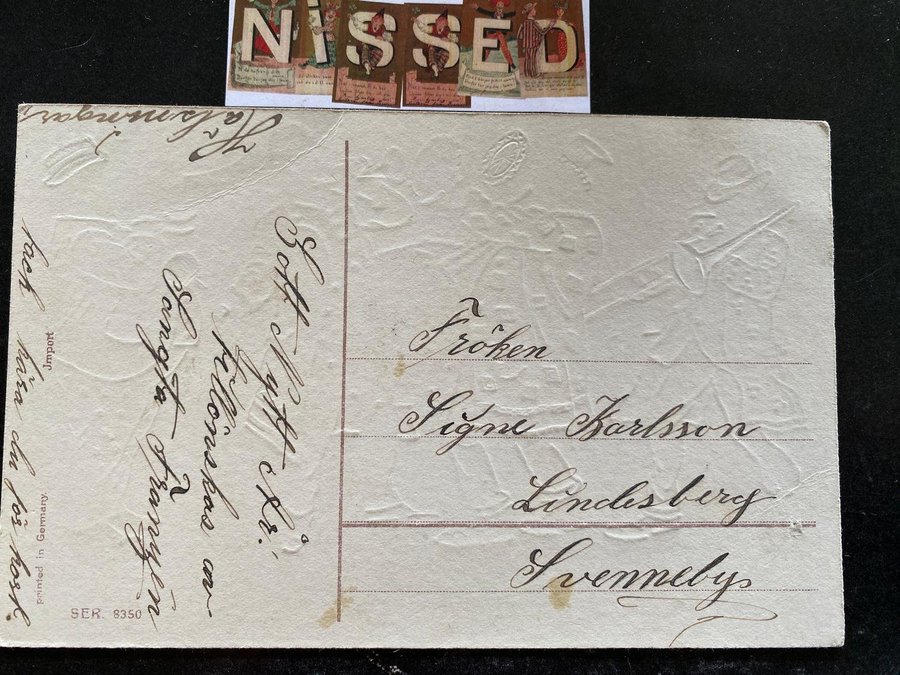 NISSED
Hälsningar
Gott Nytt År!
tillönskas av
Fröken
Signe Karlsson
Lindesberg
Svenneby
tack kära du för kort.
Jmport
printed in Germany.
SER. 8350